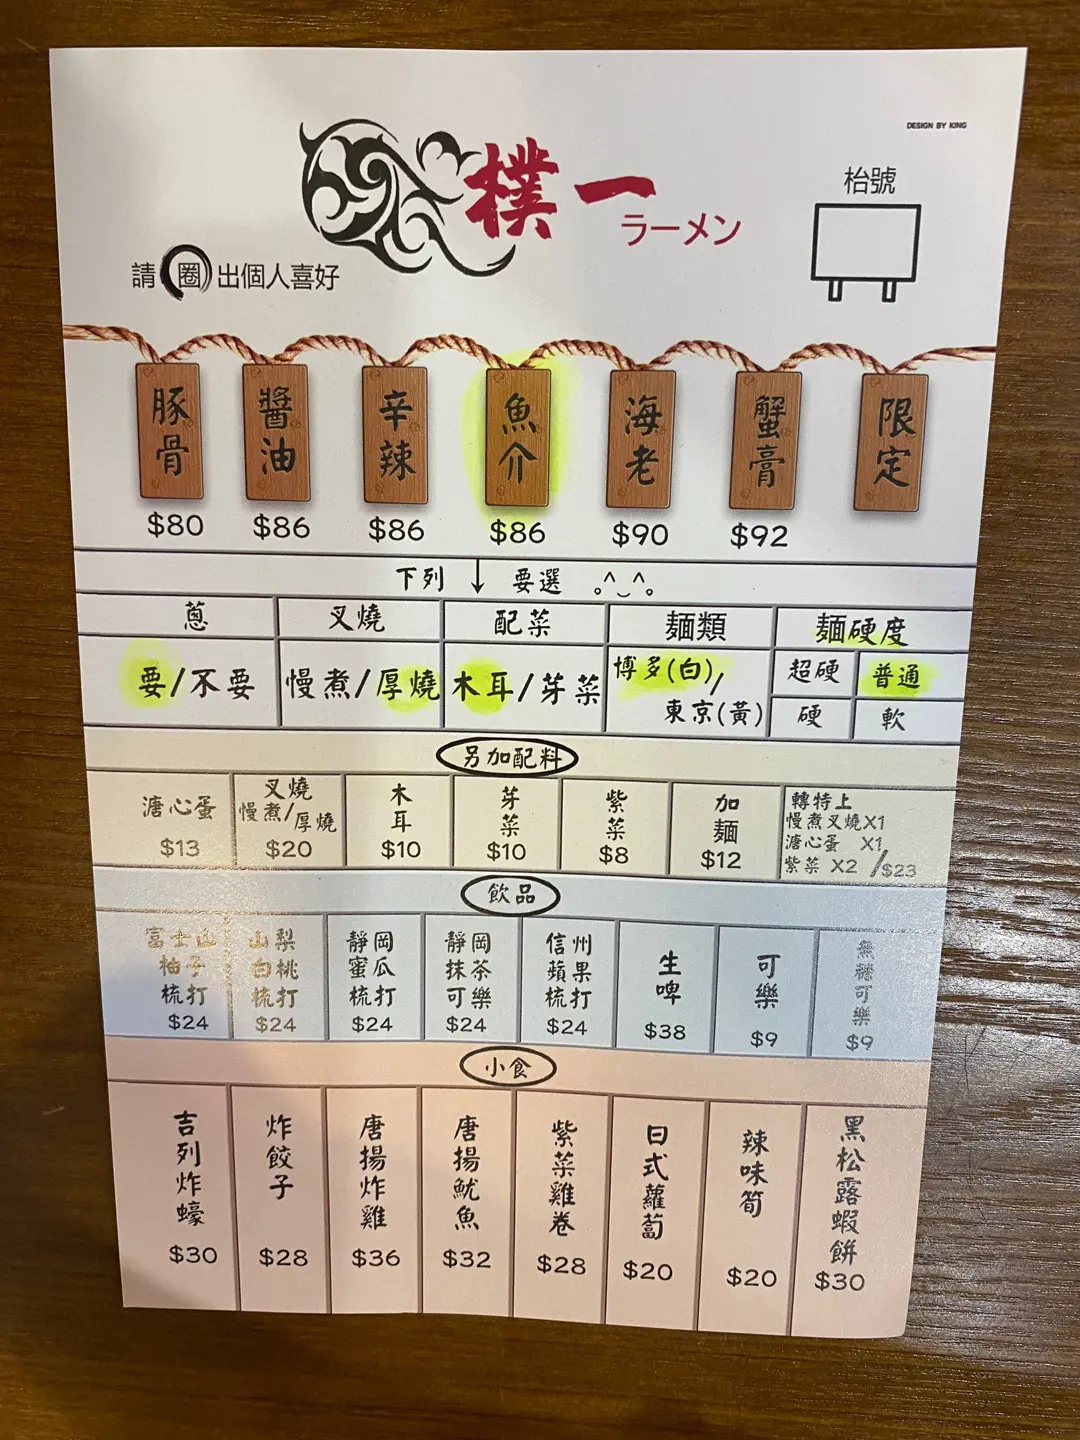 DESIGN BY KING
樸一
ラーメン
枱號
請圈出個人喜好
豚骨 醬油 辛辣 魚介 海老 蟹膏 限定
$80 $86 $86 $86 $90 $92
下列 ↓ 要選
蔥 叉燒 配菜 麵類 麵硬度
要/不要 慢煮/厚燒 木耳/芽菜 博多(白)/東京(黃) 超硬 普通 硬 軟
另加配料
溏心蛋 $13
叉燒 慢煮/厚燒 $20
木耳 $10
芽菜 $10
紫菜 $8
加麵 $12
轉特上
慢煮叉燒X1
溏心蛋 X1
紫菜 X2 /$23
飲品
富士山柚子梳打 $24
山梨白桃梳打 $24
靜岡蜜瓜梳打 $24
靜岡抹茶可樂 $24
信州蘋果梳打 $24
生啤 $38
可樂 $9
無糖可樂 $9
小食
吉列炸蠔 $30
炸餃子 $28
唐揚炸雞 $36
唐揚魷魚 $32
紫菜雞卷 $28
日式蘿蔔 $20
辣味筍 $20
黑松露蝦餅 $30